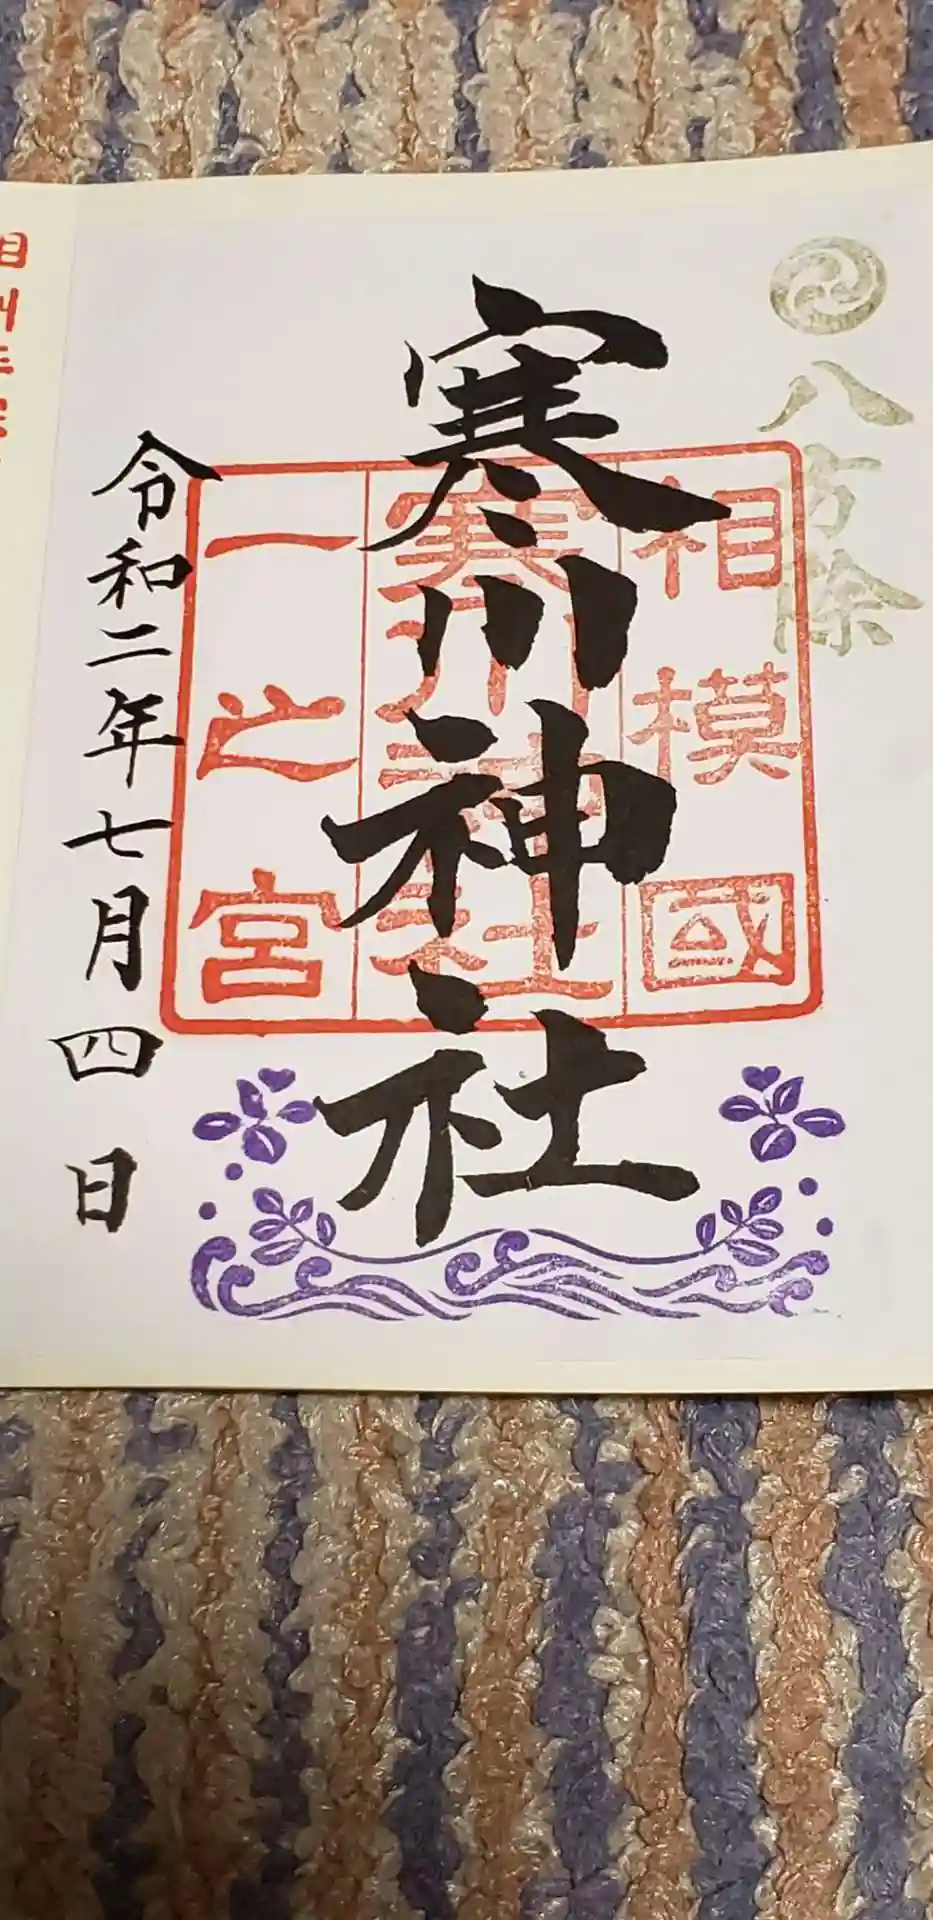 八方除
相模國
寒川神社
寒川神社
一之宮
令和二年七月四日